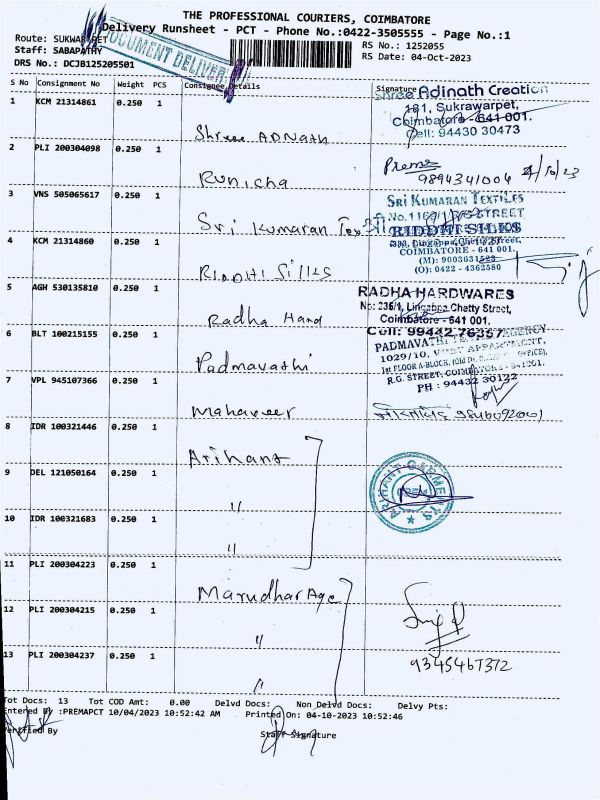 THE PROFESSIONAL COURIERS, COIMBATORE
Delivery Runsheet - PCT - Phone No.:0422-3505555 - Page No.:1
Route: SUKWAR PET
RS No.: 1252055
DOCUMENT DELIVER
Staff: SABAPATHY
RS Date: 04-Oct-2023
DRS No.: DCJB125205501
S No Consignment No Weight PCS Consignee Details Signature
1 KCM 21314861 0.250 1 Shree ADNath
Shree Adinath Creation
181, Sukrawarpet,
Coimbatore - 641 001.
Cell: 94430 30473
2 PLI 200304098 0.250 1 Runicha
9894341004 4/10/23
3 VNS 505065617 0.250 1 Sri Kumaran Tex
SRI KUMARAN TEXTILES
4 KCM 21314860 0.250 1 RIDDHI Silks
RIDDHI SILKS
COIMBATORE - 641 001.
(O): 0422 - 4362580
5 AGH 530135810 0.250 1 Radha Hard
RADHA HARDWARES
No: 236/1, Lingappa Chetty Street,
Coimbatore - 641 001.
Cell: 99442 76357
6 BLT 100215155 0.250 1 Padmavathi
PADMAVATHI AGENCY
1029/10,
R.G. STREET,
PH : 94432 30122
7 VPL 945107366 0.250 1 Mahaveer
8 IDR 100321446 0.250 1 Arihant
9 DEL 121050164 0.250 1 "
ARIHANT GARMENTS
10 IDR 100321683 0.250 1 "
11 PLI 200304223 0.250 1 Marudhar Age
12 PLI 200304215 0.250 1 "
13 PLI 200304237 0.250 1 "
9345467372
Tot Docs: 13 Tot COD Amt: 0.00 Delvd Docs: Non Delvd Docs: Delvy Pts:
Entered By :PREMAPCT 10/04/2023 10:52:42 AM Printed On: 04-10-2023 10:52:46
Verified By Staff Signature